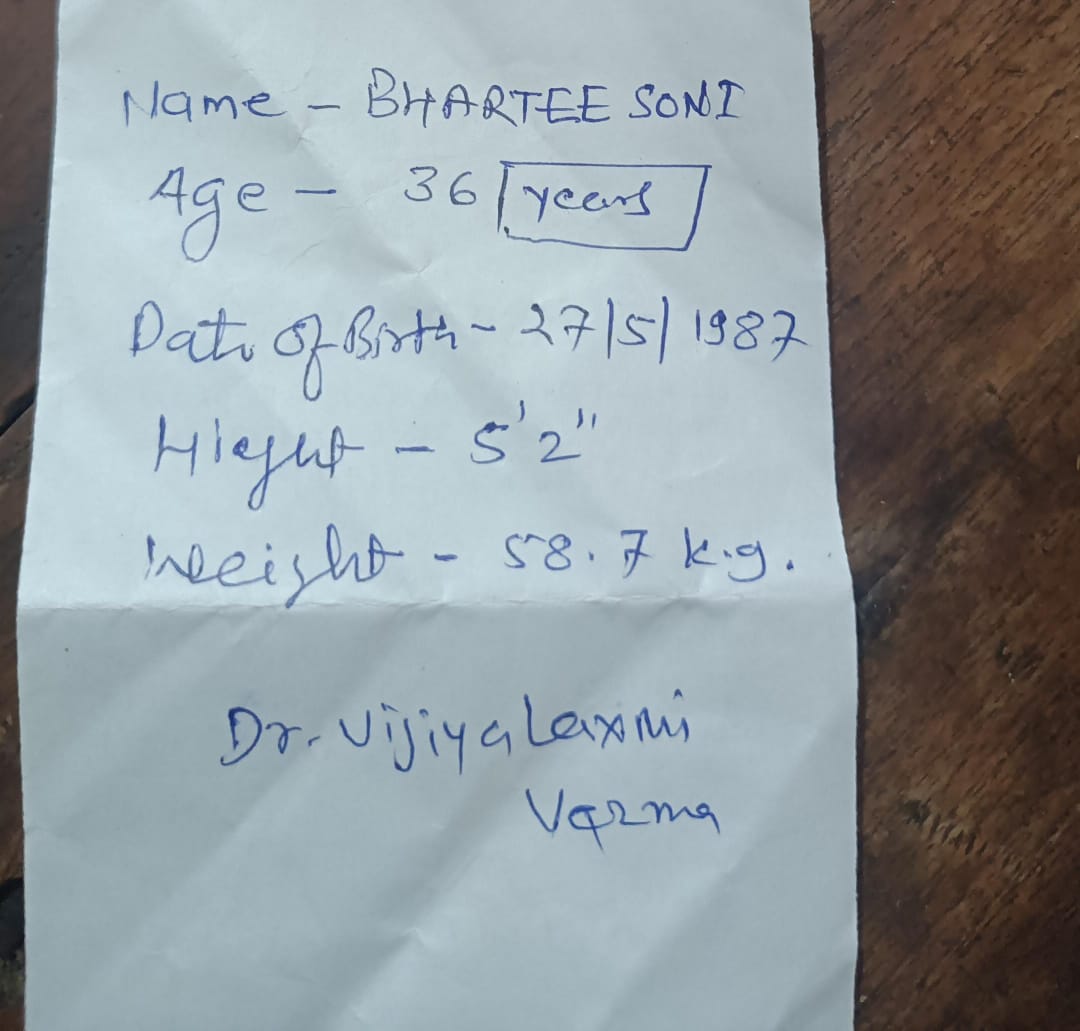 Name - BHARTEE SONI
Age - 36 years
Date of Birth - 27/5/1987
Hieght - 5'2"
Weight - 58.7 k.g.
Dr. Vijiya Laxmi
Varma